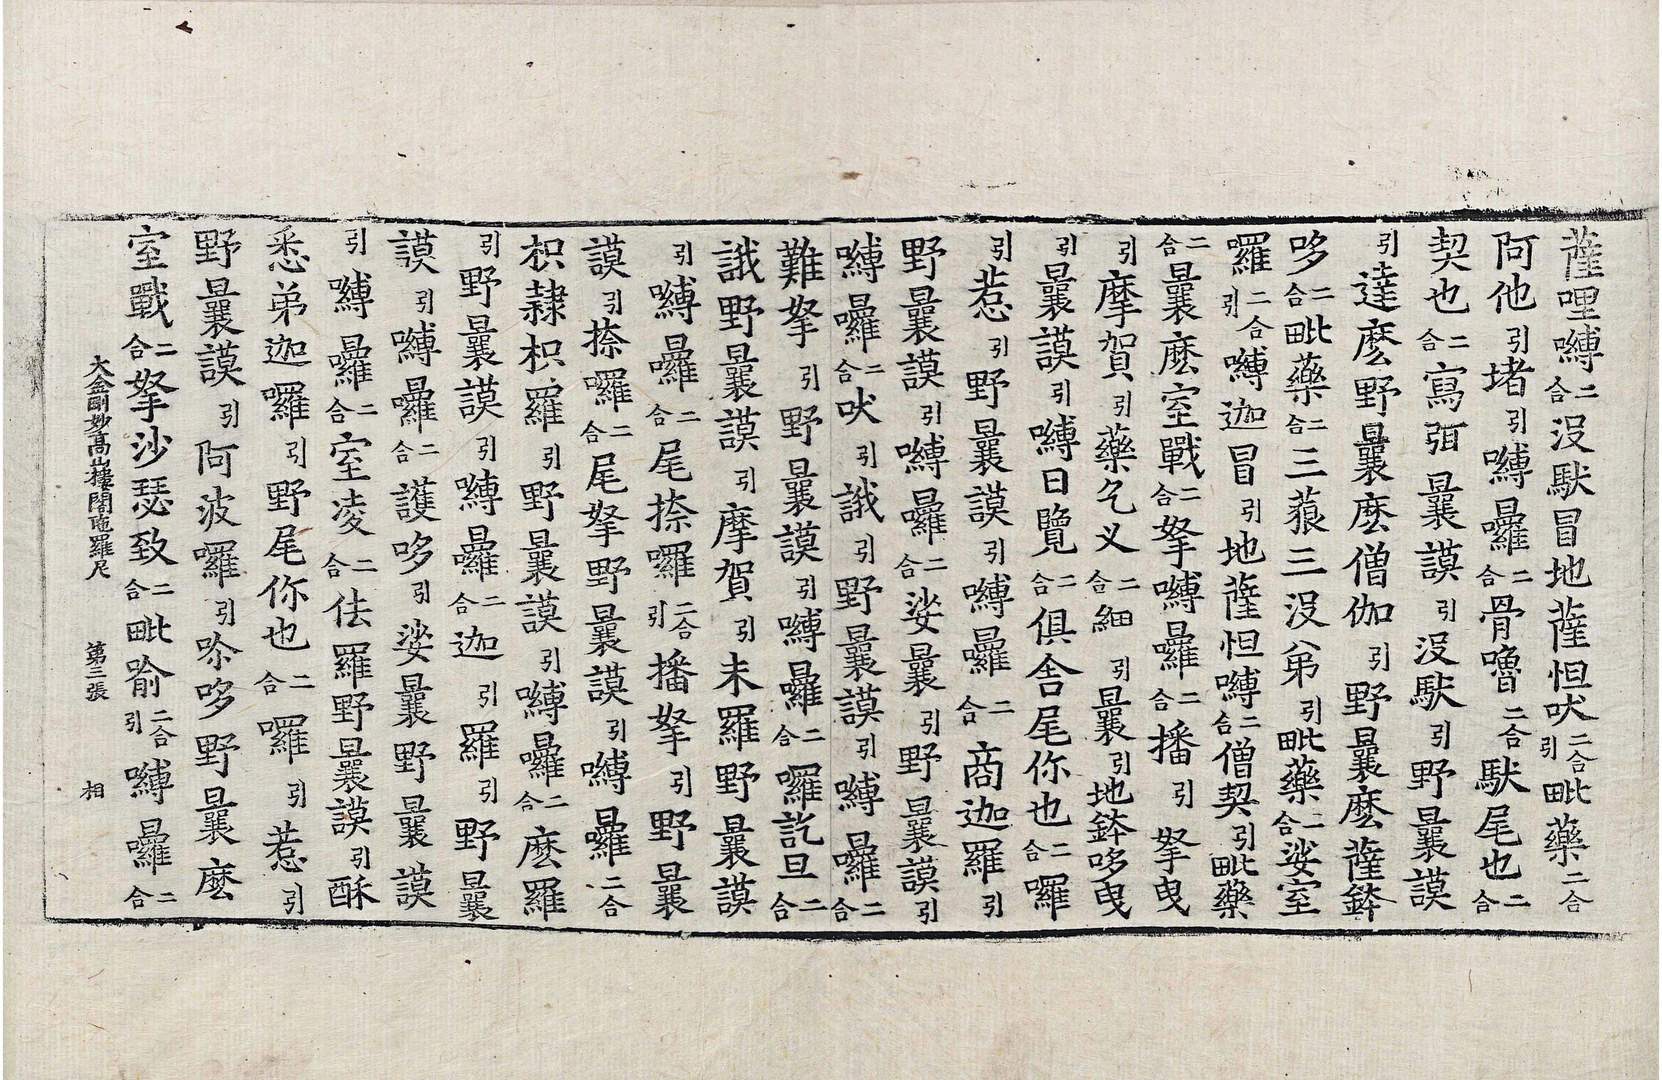 薩哩嚩二合沒馱冒地薩怛吠二合引毗藥二合
阿他引堵引嚩囉二合骨嚕二合馱尾也二合
契也二合寫弭曩謨引沒馱引野曩謨
引達麽野曩麽僧伽引野曩麽薩鉢
哆二合毗藥二合三藐三沒弟引毗藥二合娑室
囉二合引嚩迦冒引地薩怛嚩二合僧契引毗藥
二合曩麽室戰二合拏嚩囉二合播引拏曳
引摩賀引藥乞义二合細引曩引地鉢哆曳
引曩謨引嚩日覽二合俱舍尾你也二合囉
引惹引野曩謨引嚩囉二合商迦羅引
野曩謨引嚩囉二合娑曩引野曩謨引
嚩囉二合吠引誐引野曩謨引嚩囉二合
難拏引野曩謨引嚩囉二合囉訖旦二合
誐野曩謨引摩賀引未羅野曩謨
引嚩囉二合尾捺囉二合引播拏引野曩
謨引捺囉二合尾拏野曩謨引嚩囉二合
枳隸枳羅引野曩謨引嚩囉二合麽羅
引野曩謨引嚩囉二合迦引羅引野曩
謨引嚩囉二合護哆引娑曩野曩謨
引嚩囉二合室凌二合佉羅野曩謨引酥
悉弟迦囉引野尾你也二合囉引惹引
野曩謨引阿波囉引哆野曩麽
室戰二合拏沙瑟致二合毗喻二合引嚩囉二合
大金剛妙高山樓閣陁羅尼 第三張 相